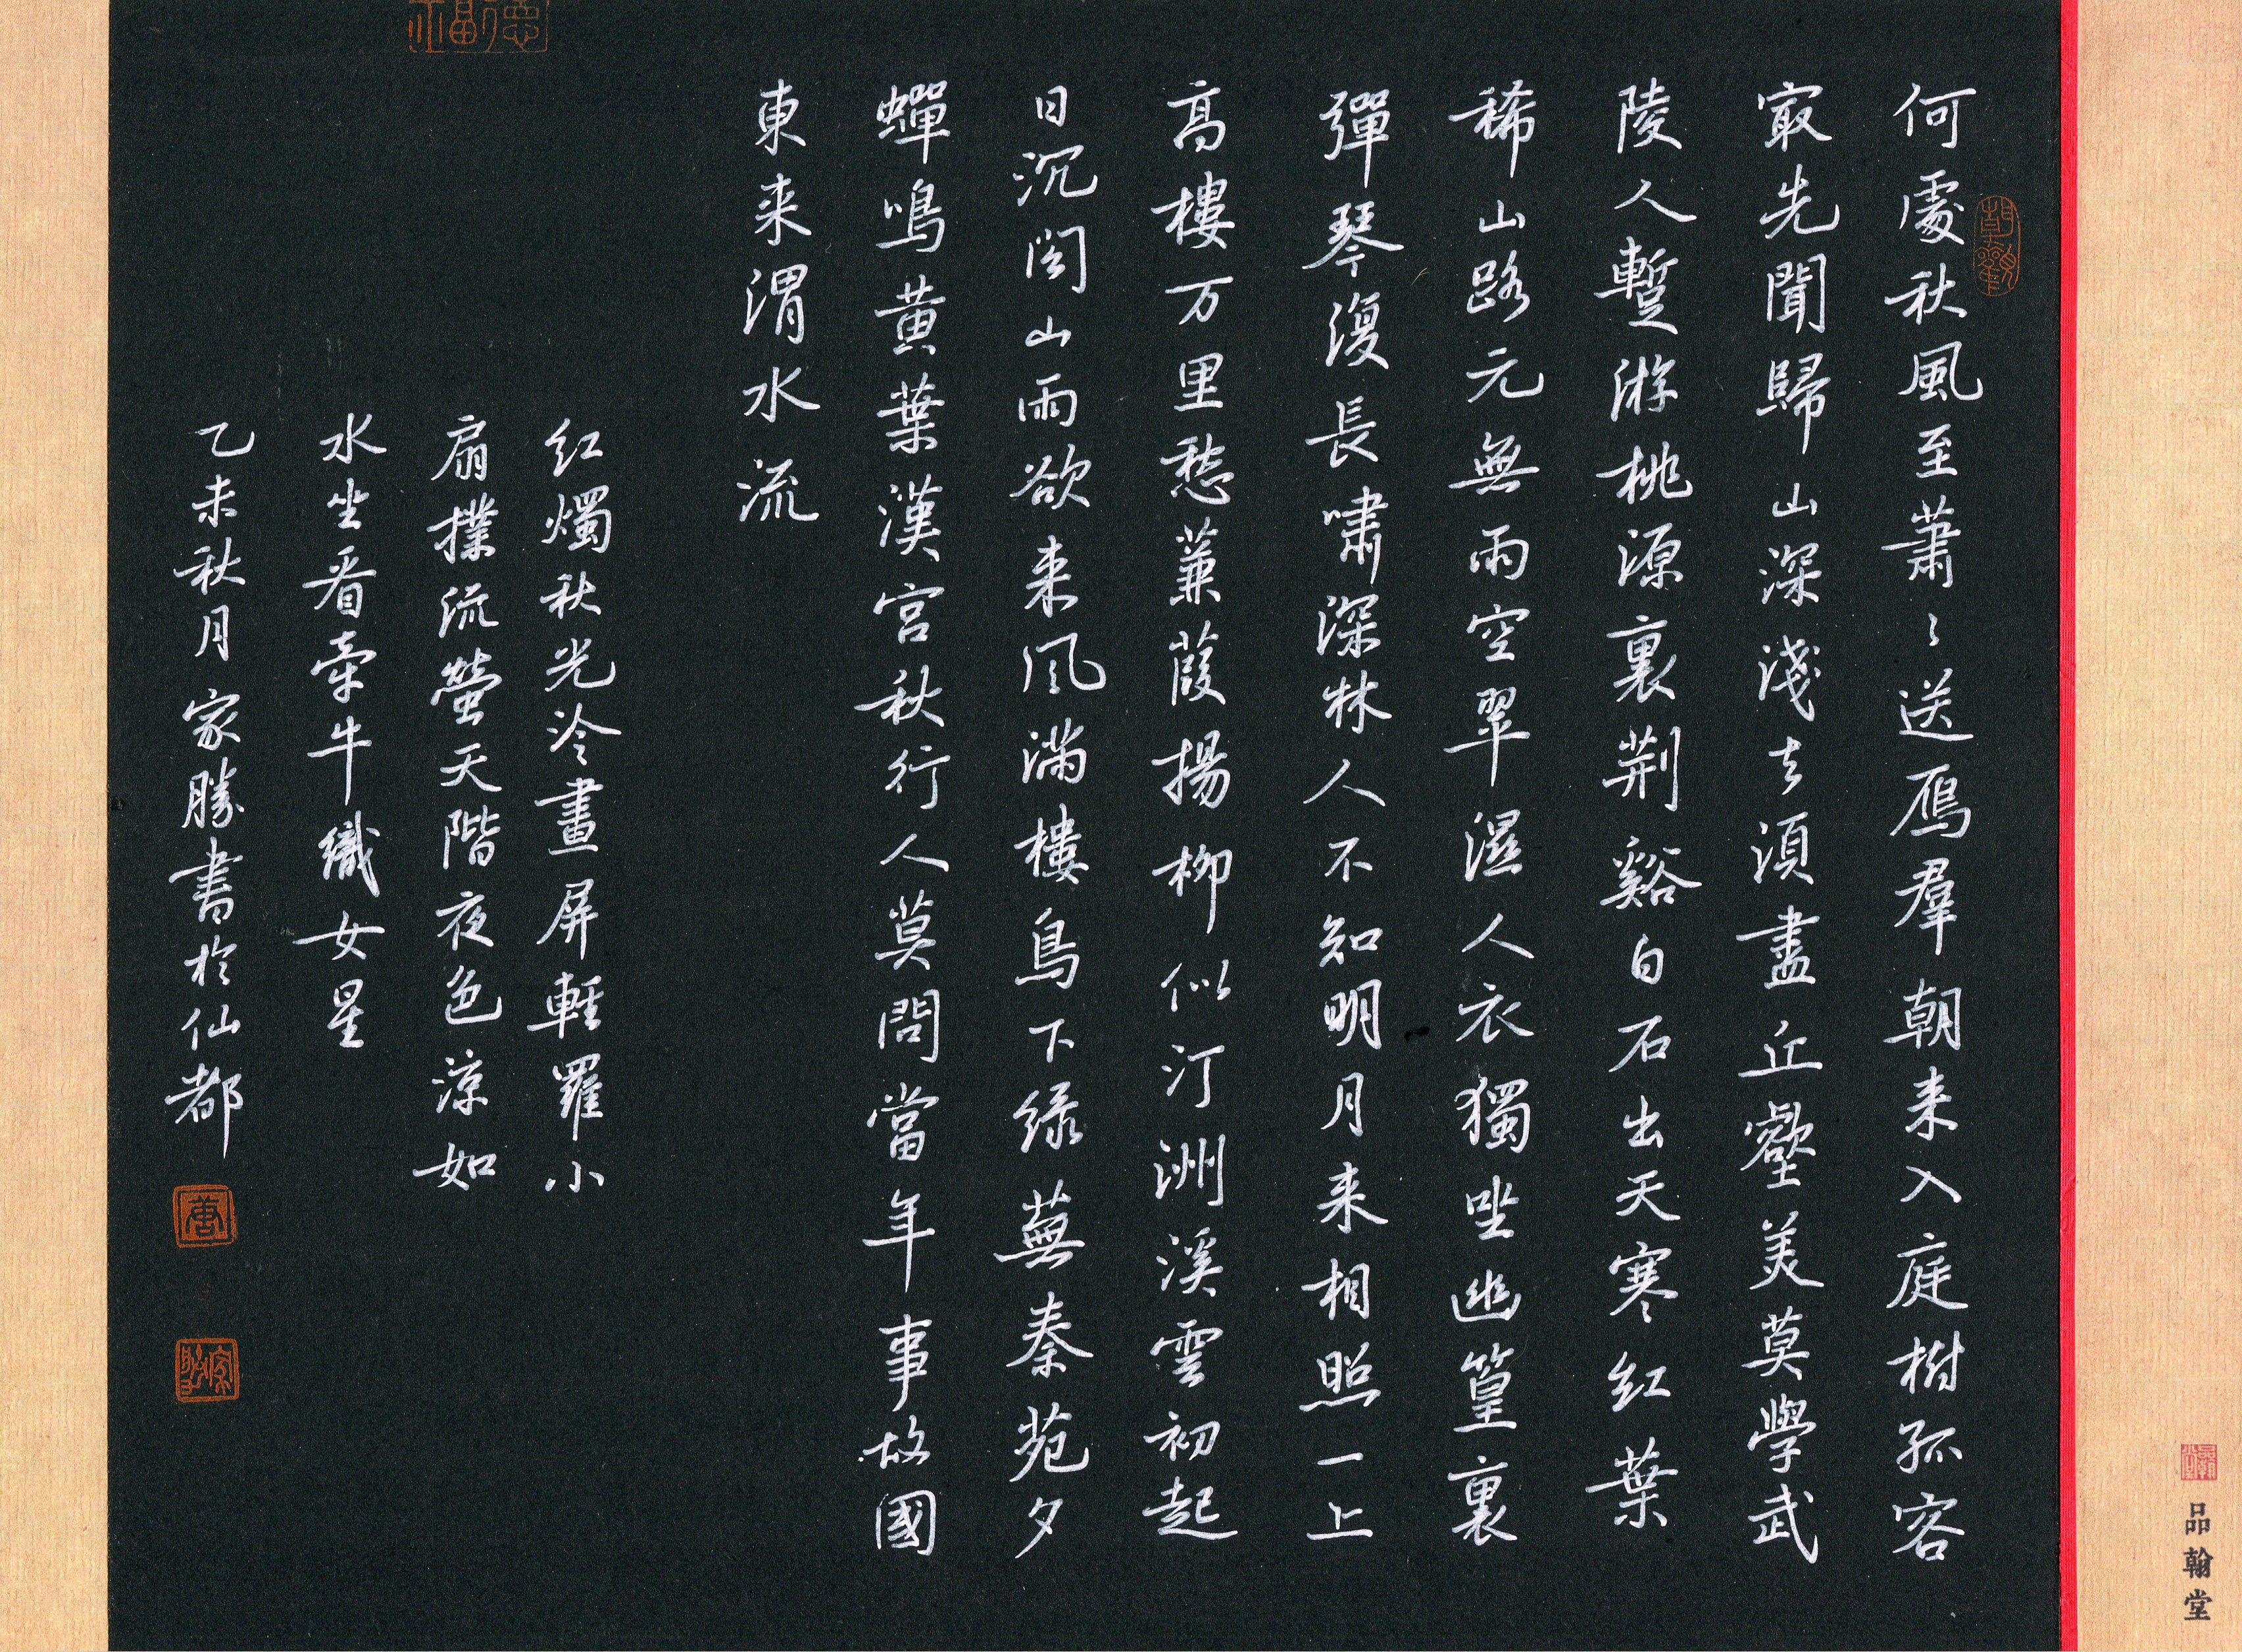 何處秋風至蕭〻送鴈羣朝来入庭樹孤客
最先聞歸山深淺去須盡丘壑美莫學武
陵人暫游桃源裏荆谿白石出天寒红葉
稀山路元無雨空翠濕人衣獨坐幽篁裏
彈琴復長嘯深林人不知明月来相照一上
高樓万里愁蒹葭揚柳似汀洲溪雲初起
日沉閣山雨欲来风滿樓鳥下绿蕪秦苑夕
蟬鳴黄葉漢宫秋行人莫問當年事故國
東来渭水流
红燭秋光冷畫屏輕羅小
扇撲流螢天階夜色涼如
水坐看牽牛織女星
乙未秋月家勝書於仙都
唐
家勝
品翰堂